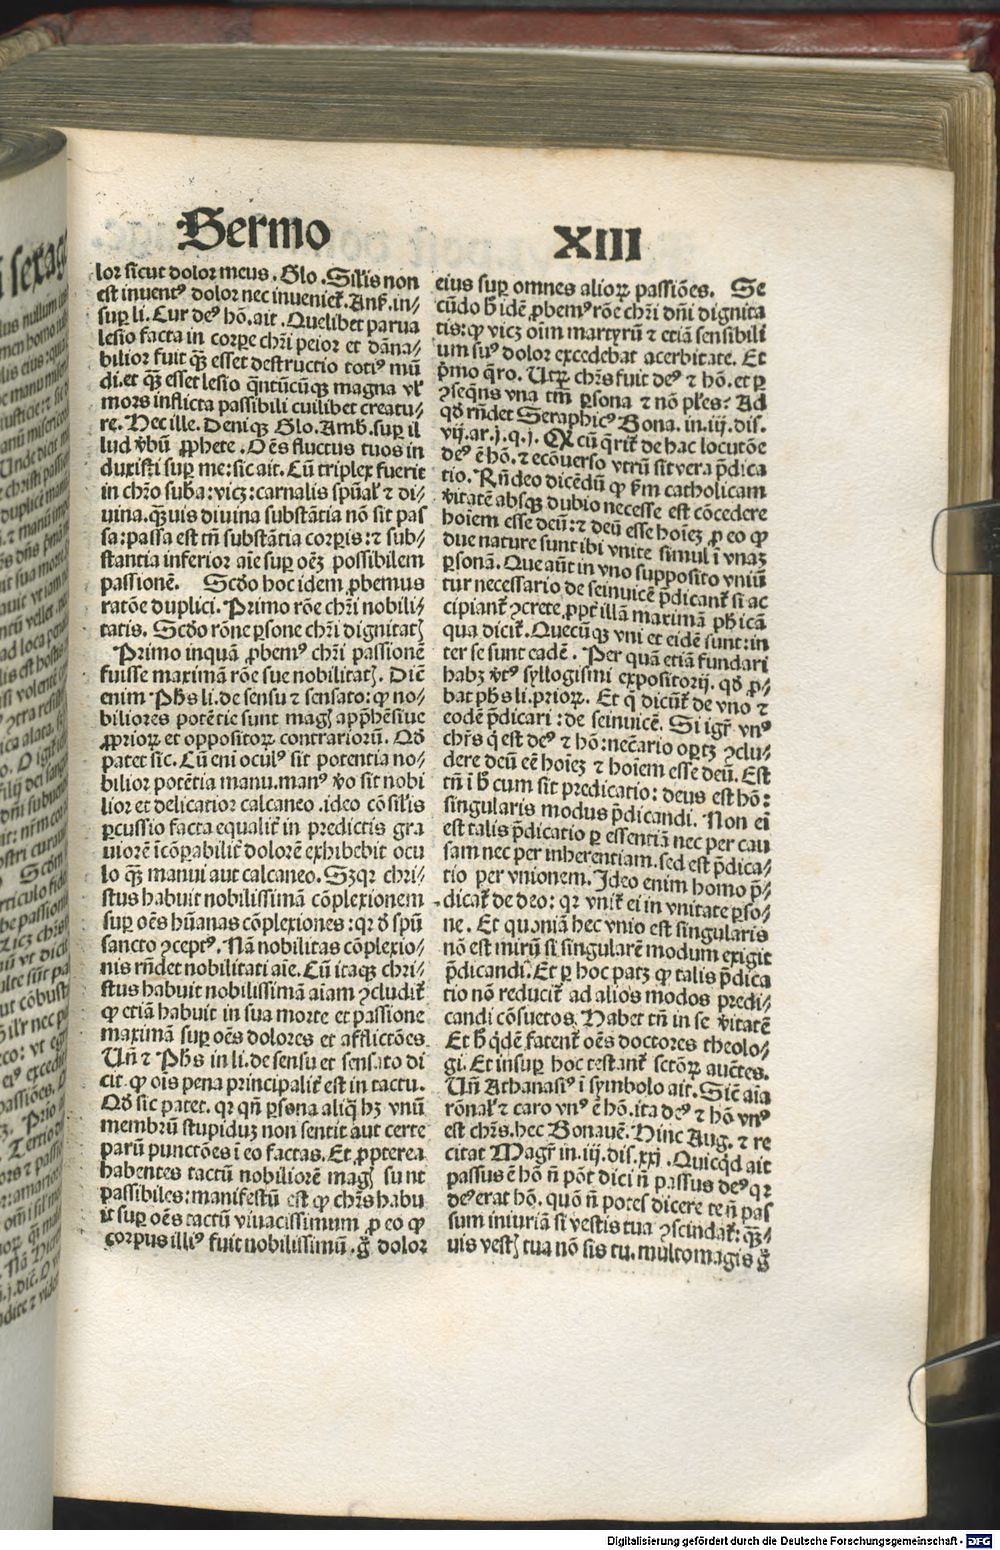 Sermo
XIII
lor sicut dolor meus. Glo. Silis non
est inuentꝰ dolor nec inueniet̃. Ans̃. in⸗
suꝑ li. Cur deꝰ hõ. ait. Quelibet parua
lesio facta in corpe chr̃i peior et dãna⸗
bilior fuit qȝ̃ esset destructio totiꝰ mũ
di. et qȝ̃ esset lesio q̃ntũcũqȝ magna vl̃
mors inflicta passibili cuilibet creatu⸗
re. Hec ille. Deniqȝ Glo. Amb̃. suꝑ il
lud v̾bũ ꝓphete. Oẽs fluctus tuos in
duxisti suꝑ me: sic ait. Cũ triplex fuerit
in chr̃o suba̾: vicȝ: carnalis spũal̃ ⁊ di⸗
uina. qȝ̃uis diuina substãtia nõ sit pas
sa: passa est tñ substãtia corꝑis: ⁊ sub⸗
stantia inferior aĩe suꝑ oẽȝ possibilem
passionẽ. Scd̾o hoc idem ꝓbemus
ratõe duplici. Primo rõe chr̃i nobili⸗
tatis. Scd̾o rõne ꝑsone chr̃i dignitatꝭ
Primo inquã ꝓbemꝰ chr̃i passionẽ
fuisse maximã rõe sue nobilitatꝭ. Dicẽ
enim Ph̃s li. de sensu ⁊ sensato: ꝙ no⸗
biliores potẽtie sunt magꝭ app̃hẽsiue
ꝓprioꝝ et oppositoꝝ contrarioꝝũ. Qd̾
patet sic. Cũ eni oculꝰ sit potentia no⸗
bilior potẽtia manu. manꝰ v̾o sit nobi
lior et delicatior calcaneo. ideo cõsil̃is
ꝑcussio facta equalit̃ in predictis gra
uiorẽ ĩcõꝑabilit̃ dolorẽ exhibebit ocu
lo qȝ̃ manui aut calcaneo. Sȝ qꝛ chri⸗
stus habuit nobilissimã cõplexionem
suꝑ oẽs hũanas cõplexiones: qꝛ d̾ spũ
sancto ꝯceptꝰ. Nã nobilitas cõplexio⸗
nis rñdet nobilitati aĩe. Cũ itaqȝ chri⸗
stus habuit nobilissimã aĩam ꝯcludit̃
ꝙ etiã habuit in sua morte et passione
maximã suꝑ oẽs dolores et afflictões.
Uñ ⁊ Ph̃s in li. de sensu et sensato di
cit. ꝙ oĩs pena principalit̃ est in tactu.
Qd̾ sic patet. qꝛ qñ ꝑsona aliq̃ hȝ vnũ
membrũ stupiduȝ non sentit aut certe
parũ punctões ĩ eo factas. Et ꝓpterea
habentes tactũ nobiliorẽ magꝭ sunt
passibiles: manifestũ est ꝙ chr̃s habu
it suꝑ oẽs tactũ viuacissimum ꝓ eo ꝙ
corpus illiꝰ fuit nobilissimũ. g̃ dolor
eius suꝑ omnes alioꝝ passiões. Se
cũdo h̾ idẽ ꝓbemꝰ rõe chr̃i dñi dignita
tis: ꝙ vicȝ oĩm martyrũ ⁊ etiã sensibili
um suꝰ dolor excedebat acerbitate. Et
p̃mo q̃ro. Utꝝ chr̃s fuit deꝰ ⁊ hõ. et ꝑ
ꝯseq̃ns vna tm̃ ꝑsona ⁊ nõ pl̃es? Ad
qd̾ rñdet Seraphicꝰ Bona. in. iij. dis.
vij. ar. j. q. j. Qꝛ cũ q̃rit̃ de hac locutõe
deꝰ ẽ hõ. ⁊ ecõuerso vtrũ sit vera p̃dica
tio. Rñdeo dicẽdũ ꝙ ẜm catholicam
v̾itatẽ absqȝ dubio necesse est cõcedere
hoĩem esse deũ: ⁊ deũ esse hoĩeȝ ꝓ eo ꝙ
due nature sunt ibi vnite simul ĩ vnaȝ
ꝑsonã. Que aũt in vno supposito vniũ
tur necessario de seinuicẽ p̃dicant̃ si ac
cipiant̃ ꝯcrete, ꝓpt̃ illã maximã ph̃icã
qua dicit̃. Quecũqȝ vni et eidẽ sunt: in
ter se sunt eadẽ. Per quã etiã fundari
habȝ v̾tꝰ syllogismi expositorij. qd̾ ꝓ⸗
bat ph̃s li. prioꝝ. Et q̃ dicũt̃ de vno ⁊
eodẽ p̃dicari: de seinuicẽ. Si igr̃ vnꝰ
chr̃s q̃ est deꝰ ⁊ hõ: necc̃ario oꝑtȝ ꝯclu⸗
dere deũ eẽ hoĩeȝ ⁊ hoĩem esse deũ. Est
tñ ĩ h̾ cum sit predicatio: deus est hõ:
singularis modus p̃dicandi. Non eĩ
est talis p̃dicatio ꝑ essentiã nec per cau
sam nec per inherentiam. sed est p̃dica⸗
tio per vnionem. Ideo enim homo p̃⸗
dicat̃ de deo: qꝛ vnit̃ ei in vnitate ꝑso⸗
ne. Et quoniã hec vnio est singularis
nõ est mirũ si singularẽ modum exigit
p̃dicandi. Et ꝑ hoc patȝ ꝙ talis p̃dica
tio nõ reducit̃ ad alios modos predi⸗
candi cõsuetos. Habet tñ in se v̾itatẽ
Et h̾ q̃dẽ fatent̃ oẽs doctores theolo⸗
gi. Et insuꝑ hoc testant̃ sctõꝝ auctẽs.
Uñ Athanasiꝰ ĩ symbolo ait. Sic̃ aĩa
rõnal̃ ⁊ caro vnꝰ ẽ hõ. ita deꝰ ⁊ hõ vnꝰ
est chr̃s. hec Bonauẽ. Hinc Aug. ⁊ re
citat Magr̃ in. iij. dis. xxj. Quicq̃d ait
passus ẽ hõ ñ põt dici ñ passus deꝰ qꝛ
deꝰ erat hõ. quõ ñ potes dicere te ñ pas
sum iniuriã si vestis tua ꝯscindat̃: qȝ̃⸗
uis vestꝭ tua nõ sis tu. multomagis g̃
Digitalisierung gefördert durch die Deutsche Forschungsgemeinschaft - DFG